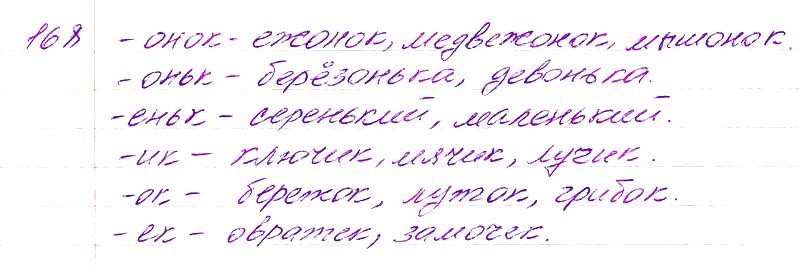 168 -онок- ежонок, медвежонок, мышонок.
-оньк- берёзонька, девонька.
-еньк- серенький, маленький.
-ик- ключик, мячик, лучик.
-ок- бережок, лужок, грибок.
-ек- овражек, замочек.